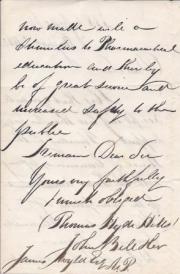 now made will a
stimulus to Pharmaceutical
education and thereby
be of great service and
increased safety to the
public
I remain Dear Sir
Yours very faithfully
& much obliged
(Thomas Hyde Hills)
John
James Esq M.P